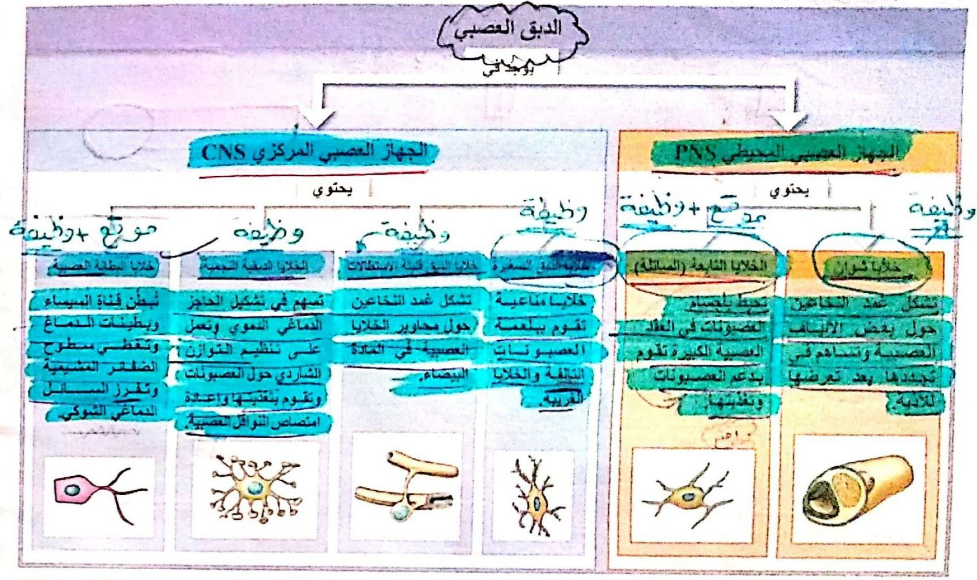 الدبق العصبي
يوجد في
الجهاز العصبي المحيطي PNS
يحتوي
وظيفة
خلايا شوان
تشكل غمد النخاعين
حول بعض الألياف
العصبية وتساهم في
تجددها بعد تعرضها
للأذية.
موقع + وظيفة
الخلايا التابعة (الساتلة)
تحيط بأجسام
العصبونات في العقد
العصبية الكبيرة تقوم
بدعم العصبونات
وتغذيتها.
الجهاز العصبي المركزي CNS
يحتوي
وظيفة
خلايا الدبق الصغيرة
خلايا مناعية
تقوم ببلعمة
العصبونات
التالفة والخلايا
الغريبة.
وظيفة
خلايا الدبق قليلة الاستطالات
تشكل غمد النخاعين
حول محاوير الخلايا
العصبية في المادة
البيضاء.
وظيفة
الخلايا الدبقية النجمية
تسهم في تشكيل الحاجز
الدماغي الدموي وتعمل
على تنظيم التوازن
الشاردي حول العصبونات
وتقوم بتغذيتها وإعادة
امتصاص النواقل العصبية.
موقع + وظيفة
خلايا البطانة العصبية
تبطن قناة السيساء
وبطينات الدماغ
وتغطي سطوح
الضفائر المشيمية
وتفرز السائل
الدماغي الشوكي.